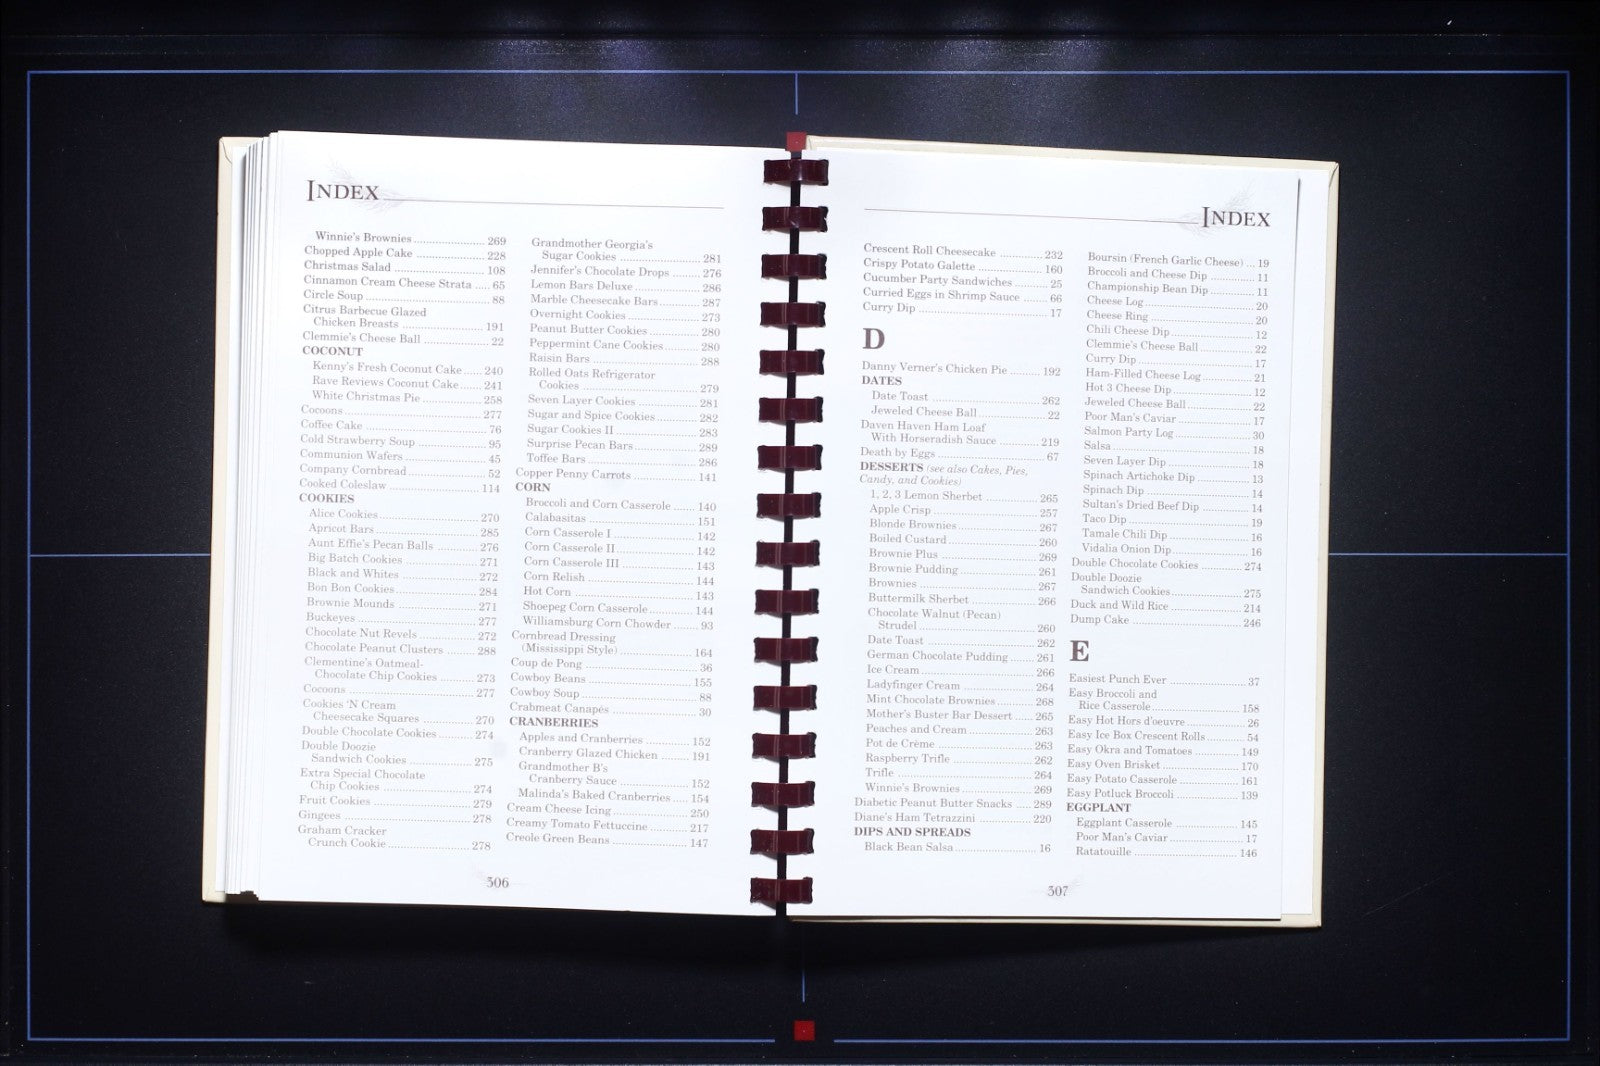 INDEX
Winnie's Brownies ........................ 269
Chopped Apple Cake ........................ 228
Christmas Salad ........................ 108
Cinnamon Cream Cheese Strata .... 65
Circle Soup ........................ 88
Citrus Barbecue Glazed
Chicken Breasts ........................ 191
Clemmie's Cheese Ball ........................ 22
COCONUT
Kenny's Fresh Coconut Cake ..... 240
Rave Reviews Coconut Cake ..... 241
White Christmas Pie ........................ 258
Cocoons ........................ 277
Coffee Cake ........................ 76
Cold Strawberry Soup ........................ 95
Communion Wafers ........................ 45
Company Cornbread ........................ 52
Cooked Coleslaw ........................ 114
COOKIES
Alice Cookies ........................ 270
Apricot Bars ........................ 285
Aunt Effie's Pecan Balls ............ 276
Big Batch Cookies ........................ 271
Black and Whites ........................ 272
Bon Bon Cookies ........................ 284
Brownie Mounds ........................ 271
Buckeyes ........................ 277
Chocolate Nut Revels ........................ 272
Chocolate Peanut Clusters ........ 288
Clementine's Oatmeal-
Chocolate Chip Cookies .......... 273
Cocoons ........................ 277
Cookies 'N Cream
Cheesecake Squares ............... 270
Double Chocolate Cookies ............ 274
Double Doozie
Sandwich Cookies .................. 275
Extra Special Chocolate
Chip Cookies ........................ 274
Fruit Cookies ........................ 279
Gingees ........................ 278
Graham Cracker
Crunch Cookie ........................ 278
Grandmother Georgia's
Sugar Cookies ........................ 281
Jennifer's Chocolate Drops ....... 276
Lemon Bars Deluxe ........................ 286
Marble Cheesecake Bars ............ 287
Overnight Cookies ........................ 273
Peanut Butter Cookies ............... 280
Peppermint Cane Cookies .......... 280
Raisin Bars ........................ 288
Rolled Oats Refrigerator
Cookies ........................ 279
Seven Layer Cookies .................. 281
Sugar and Spice Cookies ............ 282
Sugar Cookies II ........................ 283
Surprise Pecan Bars .................. 289
Toffee Bars ........................ 286
Copper Penny Carrots .................. 141
CORN
Broccoli and Corn Casserole ...... 140
Calabasitas ........................ 151
Corn Casserole I ........................ 142
Corn Casserole II ........................ 142
Corn Casserole III ........................ 143
Corn Relish ........................ 144
Hot Corn ........................ 143
Shoepeg Corn Casserole ............ 144
Williamsburg Corn Chowder ....... 93
Cornbread Dressing
(Mississippi Style) ........................ 164
Coup de Pong ........................ 36
Cowboy Beans ........................ 155
Cowboy Soup ........................ 88
Crabmeat Canapés ........................ 30
CRANBERRIES
Apples and Cranberries ............ 152
Cranberry Glazed Chicken ........ 191
Grandmother B's
Cranberry Sauce ........................ 152
Malinda's Baked Cranberries .... 154
Cream Cheese Icing ........................ 250
Creamy Tomato Fettuccine .......... 217
Creole Green Beans ........................ 147
306
INDEX
Crescent Roll Cheesecake ............ 232
Crispy Potato Galette .................. 160
Cucumber Party Sandwiches ......... 25
Curried Eggs in Shrimp Sauce ...... 66
Curry Dip ........................ 17
D
Danny Verner's Chicken Pie ......... 192
DATES
Date Toast ........................ 262
Jeweled Cheese Ball .................. 22
Daven Haven Ham Loaf
With Horseradish Sauce ............ 219
Death by Eggs ........................ 67
DESSERTS (see also Cakes, Pies,
Candy, and Cookies)
1, 2, 3 Lemon Sherbet ............... 265
Apple Crisp ........................ 257
Blonde Brownies ........................ 267
Boiled Custard ........................ 260
Brownie Plus ........................ 269
Brownie Pudding ........................ 261
Brownies ........................ 267
Buttermilk Sherbet ........................ 266
Chocolate Walnut (Pecan)
Strudel ........................ 260
Date Toast ........................ 262
German Chocolate Pudding ....... 261
Ice Cream ........................ 266
Ladyfinger Cream ........................ 264
Mint Chocolate Brownies .......... 268
Mother's Buster Bar Dessert ..... 265
Peaches and Cream .................. 263
Pot de Crème ........................ 263
Raspberry Trifle ........................ 262
Trifle ........................ 264
Winnie's Brownies ........................ 269
Diabetic Peanut Butter Snacks .... 289
Diane's Ham Tetrazzini ............... 220
DIPS AND SPREADS
Black Bean Salsa ........................ 16
Boursin (French Garlic Cheese) ... 19
Broccoli and Cheese Dip ............ 11
Championship Bean Dip ............ 11
Cheese Log ........................ 20
Cheese Ring ........................ 20
Chili Cheese Dip ........................ 12
Clemmie's Cheese Ball ............... 22
Curry Dip ........................ 17
Ham-Filled Cheese Log ............... 21
Hot 3 Cheese Dip ........................ 12
Jeweled Cheese Ball .................. 22
Poor Man's Caviar ........................ 17
Salmon Party Log ........................ 30
Salsa ........................ 18
Seven Layer Dip ........................ 18
Spinach Artichoke Dip ............... 13
Spinach Dip ........................ 14
Sultan's Dried Beef Dip ............... 14
Taco Dip ........................ 19
Tamale Chili Dip ........................ 16
Vidalia Onion Dip ........................ 16
Double Chocolate Cookies ............ 274
Double Doozie
Sandwich Cookies ........................ 275
Duck and Wild Rice ........................ 214
Dump Cake ........................ 246
E
Easiest Punch Ever ........................ 37
Easy Broccoli and
Rice Casserole ........................ 158
Easy Hot Hors d'oeuvre ............... 26
Easy Ice Box Crescent Rolls ......... 54
Easy Okra and Tomatoes ............ 149
Easy Oven Brisket ........................ 170
Easy Potato Casserole .................. 161
Easy Potluck Broccoli .................. 139
EGGPLANT
Eggplant Casserole .................. 145
Poor Man's Caviar ........................ 17
Ratatouille ........................ 146
307